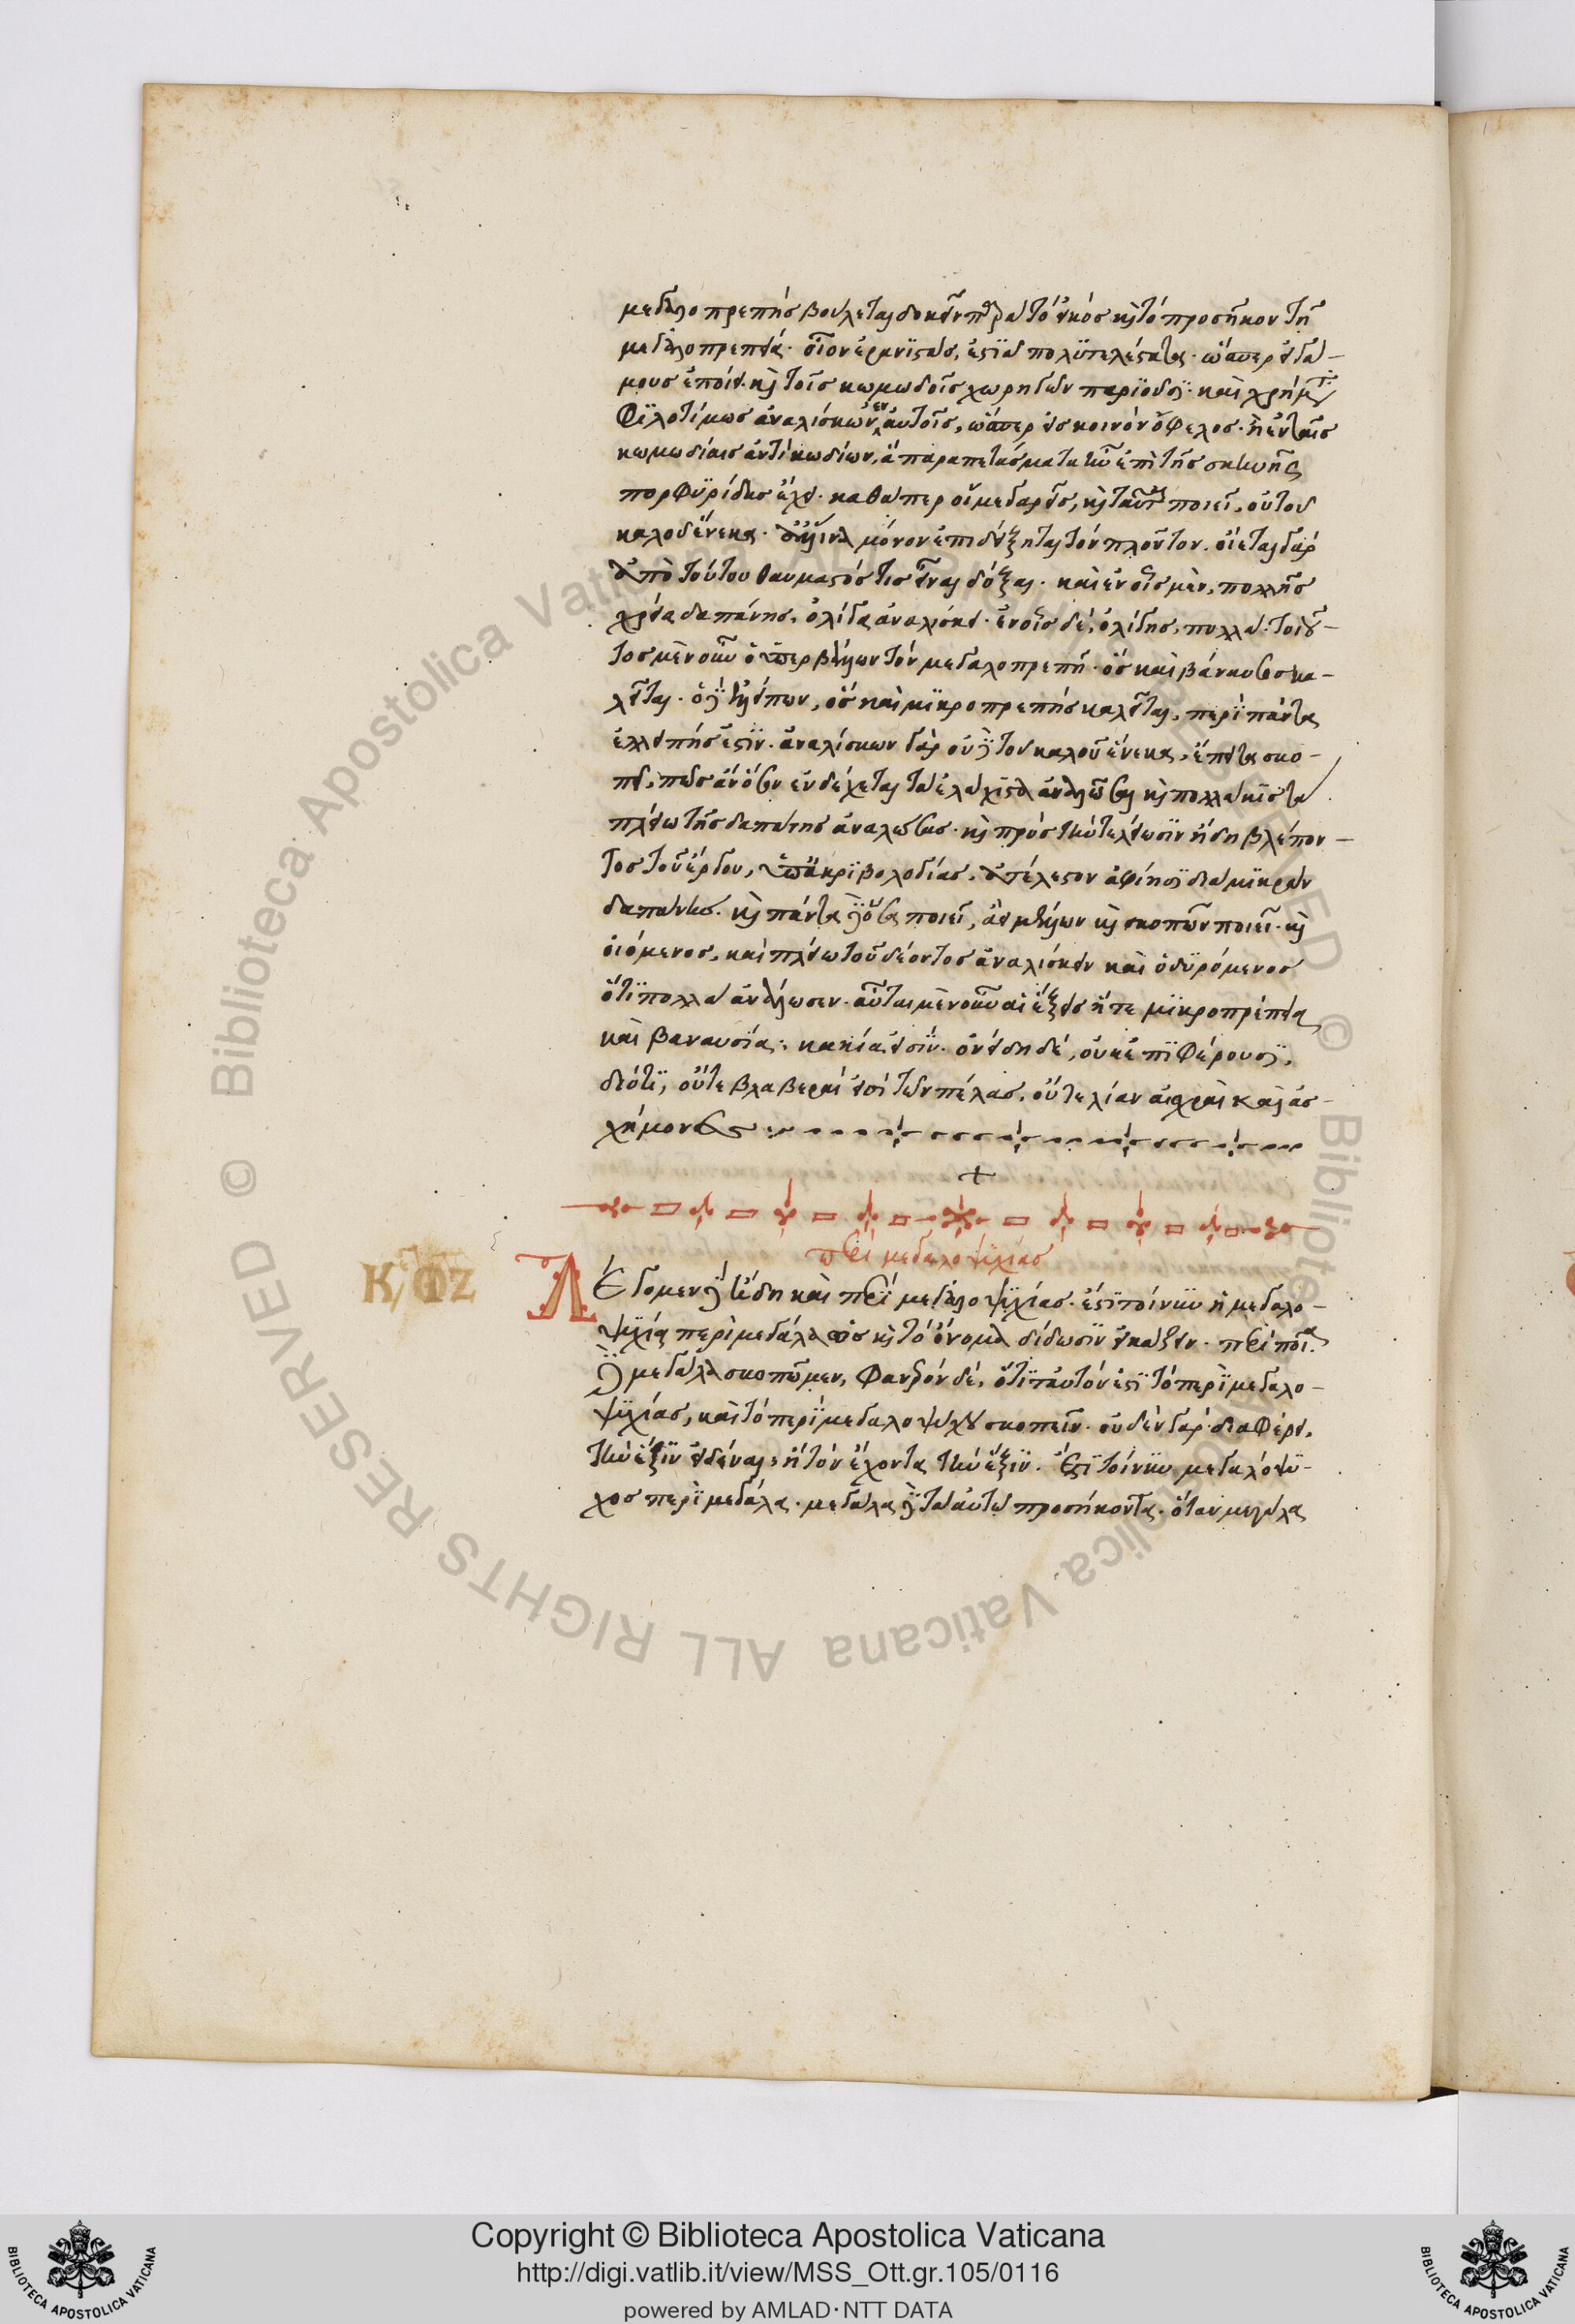 μεγαλοπρεπὴς βούλεται δοκεῖν παρὰ τὸ εἰκὸς καὶ τὸ προσῆκον τῆ
μεγαλοπρεπεία· οἷον ἐρανιστὰς, ἑστιᾶ πολυτελέστατα· ὥσπερ εἰ γά-
μους ἐποίει· καὶ τοῖς κωμωδοῖς χωρηγῶν παριοῦσι· καὶ χρήματα
φιλοτίμως ἀναλίσκων ἐν αὐτοῖς, ὥσπερ εἰς κοινὸν ὄφελος· ἢ ἐν ταῖς
κωμωδίαις ἀντὶ κωδίων, ἃ παραπετάσματα ἦν ἐπὶ τῆς σκηνῆς
πορφυρίδας ἔχει· καθάπερ οἱ μεγαρεῖς, καὶ ταῦτα ποιεῖ, οὐ τοῦ
καλοῦ ἕνεκα· ἀλλ' ἵνα μόνον ἐπιδείξηται τὸν πλοῦτον. οἴεται γὰρ
ἀπὸ τούτου θαυμαστός τις εἶναι δόξαι· καὶ ἐν οἷς μὲν, πολλῆς
χρεία δαπάνης, ὀλίγα ἀναλίσκει· ἐν οἷς δὲ, ὀλίγης, πολλά· τοιοῦ-
τος μὲν οὖν ὁ ὑπερβάλλων τὸν μεγαλοπρεπῆ· ὃς καὶ βάναυσος κα-
λεῖται· ὁ δὲ ἐλλείπων, ὃς καὶ μικροπρεπὴς καλεῖται, περὶ πάντα
ἐλλειπής ἐστιν· ἀναλίσκων γὰρ οὐ τοῦ καλοῦ ἕνεκα, ἔπειτα σκο-
πεῖ, πῶς ἂν ἐνδέχεται τὰ ἐλάχιστα ἀναλῶσαι καὶ πολλάκις τὰ
πλείω τῆς δαπάνης ἀναλώσας· καὶ πρὸς τὴν τελείωσιν ἤδη βλέπον-
τος τοῦ ἔργου, ὑπὸ ἀκριβολογίας, ἀτέλεστον ἀφίησι διὰ μικρὰν
δαπάνην. καὶ πάντα ὅσα ποιεῖ, ἀεὶ μέλλων καὶ σκοπῶν ποιεῖ· καὶ
οἰόμενος, καὶ πλείω τοῦ δέοντος ἀναλίσκειν καὶ ὀδυρόμενος
ὅτι πολλὰ ἀνάλωσεν· αὗται μὲν οὖν αἱ ἕξεις ἥτε μικροπρέπεια
καὶ βαναυσία· κακία εἰσίν· ὀνείδη δὲ, οὐκ ἐπιφέρουσι,
διότι, οὔτε βλαβεραί εἰσι τῶν πέλας, οὔτε λίαν αἰσχραὶ καὶ ἀσ-
χήμονες
περὶ μεγαλοψυχίας
Λέγομεν δὲ ἤδη καὶ περὶ μεγαλοψυχίας· ἔστι τοίνυν ἡ μεγαλο-
ψυχία περὶ μεγάλα ὡς καὶ τὸ ὄνομα δίδωσιν εἰκάζειν· περὶ ποῖα
δὲ μεγάλα σκοπῶμεν, φανερὸν δὲ, ὅτι ταυτόν ἐστι τὸ περὶ μεγαλο-
ψυχίας, καὶ τὸ περὶ μεγαλοψύχου σκοπεῖν· οὐδὲν γὰρ διαφέρει,
τὴν ἕξιν εἰδέναι, ἢ τὸν ἔχοντα τὴν ἕξιν. ἔστι τοίνυν μεγαλόψυ-
χος περὶ μεγάλα· μεγάλα δὲ τὰ αὐτῶ προσήκοντα· ὅταν μεγάλα
© Biblioteca Apostolica Vaticana ALL RIGHTS RESERVED
Copyright © Biblioteca Apostolica Vaticana
http://digi.vatlib.it/view/MSS_Ott.gr.105/0116
powered by AMLAD·NTT DATA
BIBLIOTECA APOSTOLICA VATICANA
BIBLIOTECA APOSTOLICA VATICANA